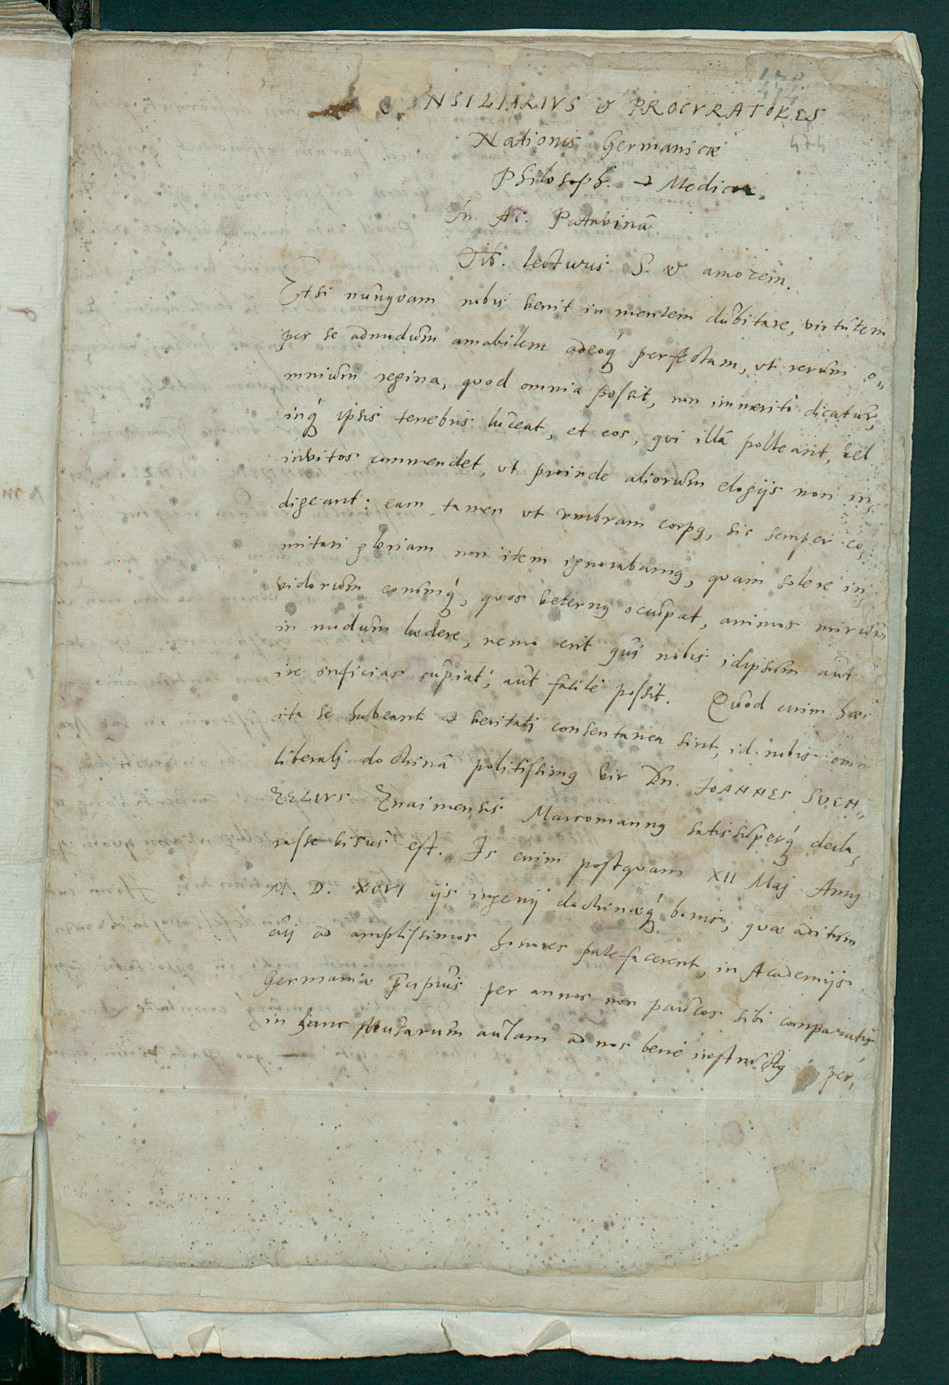 CONSILIARIVS & PROCVRATORES
Nationis Germanicæ
Philosoph. et Medicæ.
In Ac. Patavinâ
Lecturis S. & amorem.
Etsi nunquam nobis venit in mentem dubitare, virtutem
per se admodum amabilem adeoq́ perfectam, ut rerum o„
mnium regina, quod omnia possit, non immerito dicatur,
inq́ ipsis tenebris luceat, et eos, qui illâ polleant, vel
invitos commendet, ut proinde aliorum elogijs non in„
digeant: eam tamen ut umbram corpꝯ, sic semper co„
mitari gloriam non item ignorabamꝯ, quam solere in„
vidorum eorumq́, quos veternꝯ occupat, animos mirum
in modum lædere, nemo erit qui nobis idipsum aut
ire inficias cupiat, aut salté possit. Quod enim hæc
ita se habeant et veritati consentanea sint, id nobis omni
liberali doctrinâ politissimꝯ vir Dn. JOANNES SUCH„
Znaimensis Marcomannꝯ satis superq́ decla„
rasse visus est. Is enim postquam XII Maj Anni
M. D. XCVI ijs ingenij doctrinæq́ bonis, quæ aditum
ei ad amplissimos honores patefacerent, in Academijs
Germaniæ per annos non paucos sibi comparatis
in hanc Musarum aulam ad nos bene instructꝯ per„